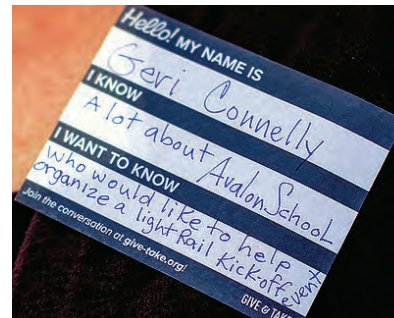 Hello! MY NAME IS
Geri Connelly
I KNOW
A lot about Avalon School
I WANT TO KNOW
Who would like to help
organize a light Rail Kick-off event
Join the conversation at give-take.org!
GIVE & TAKE